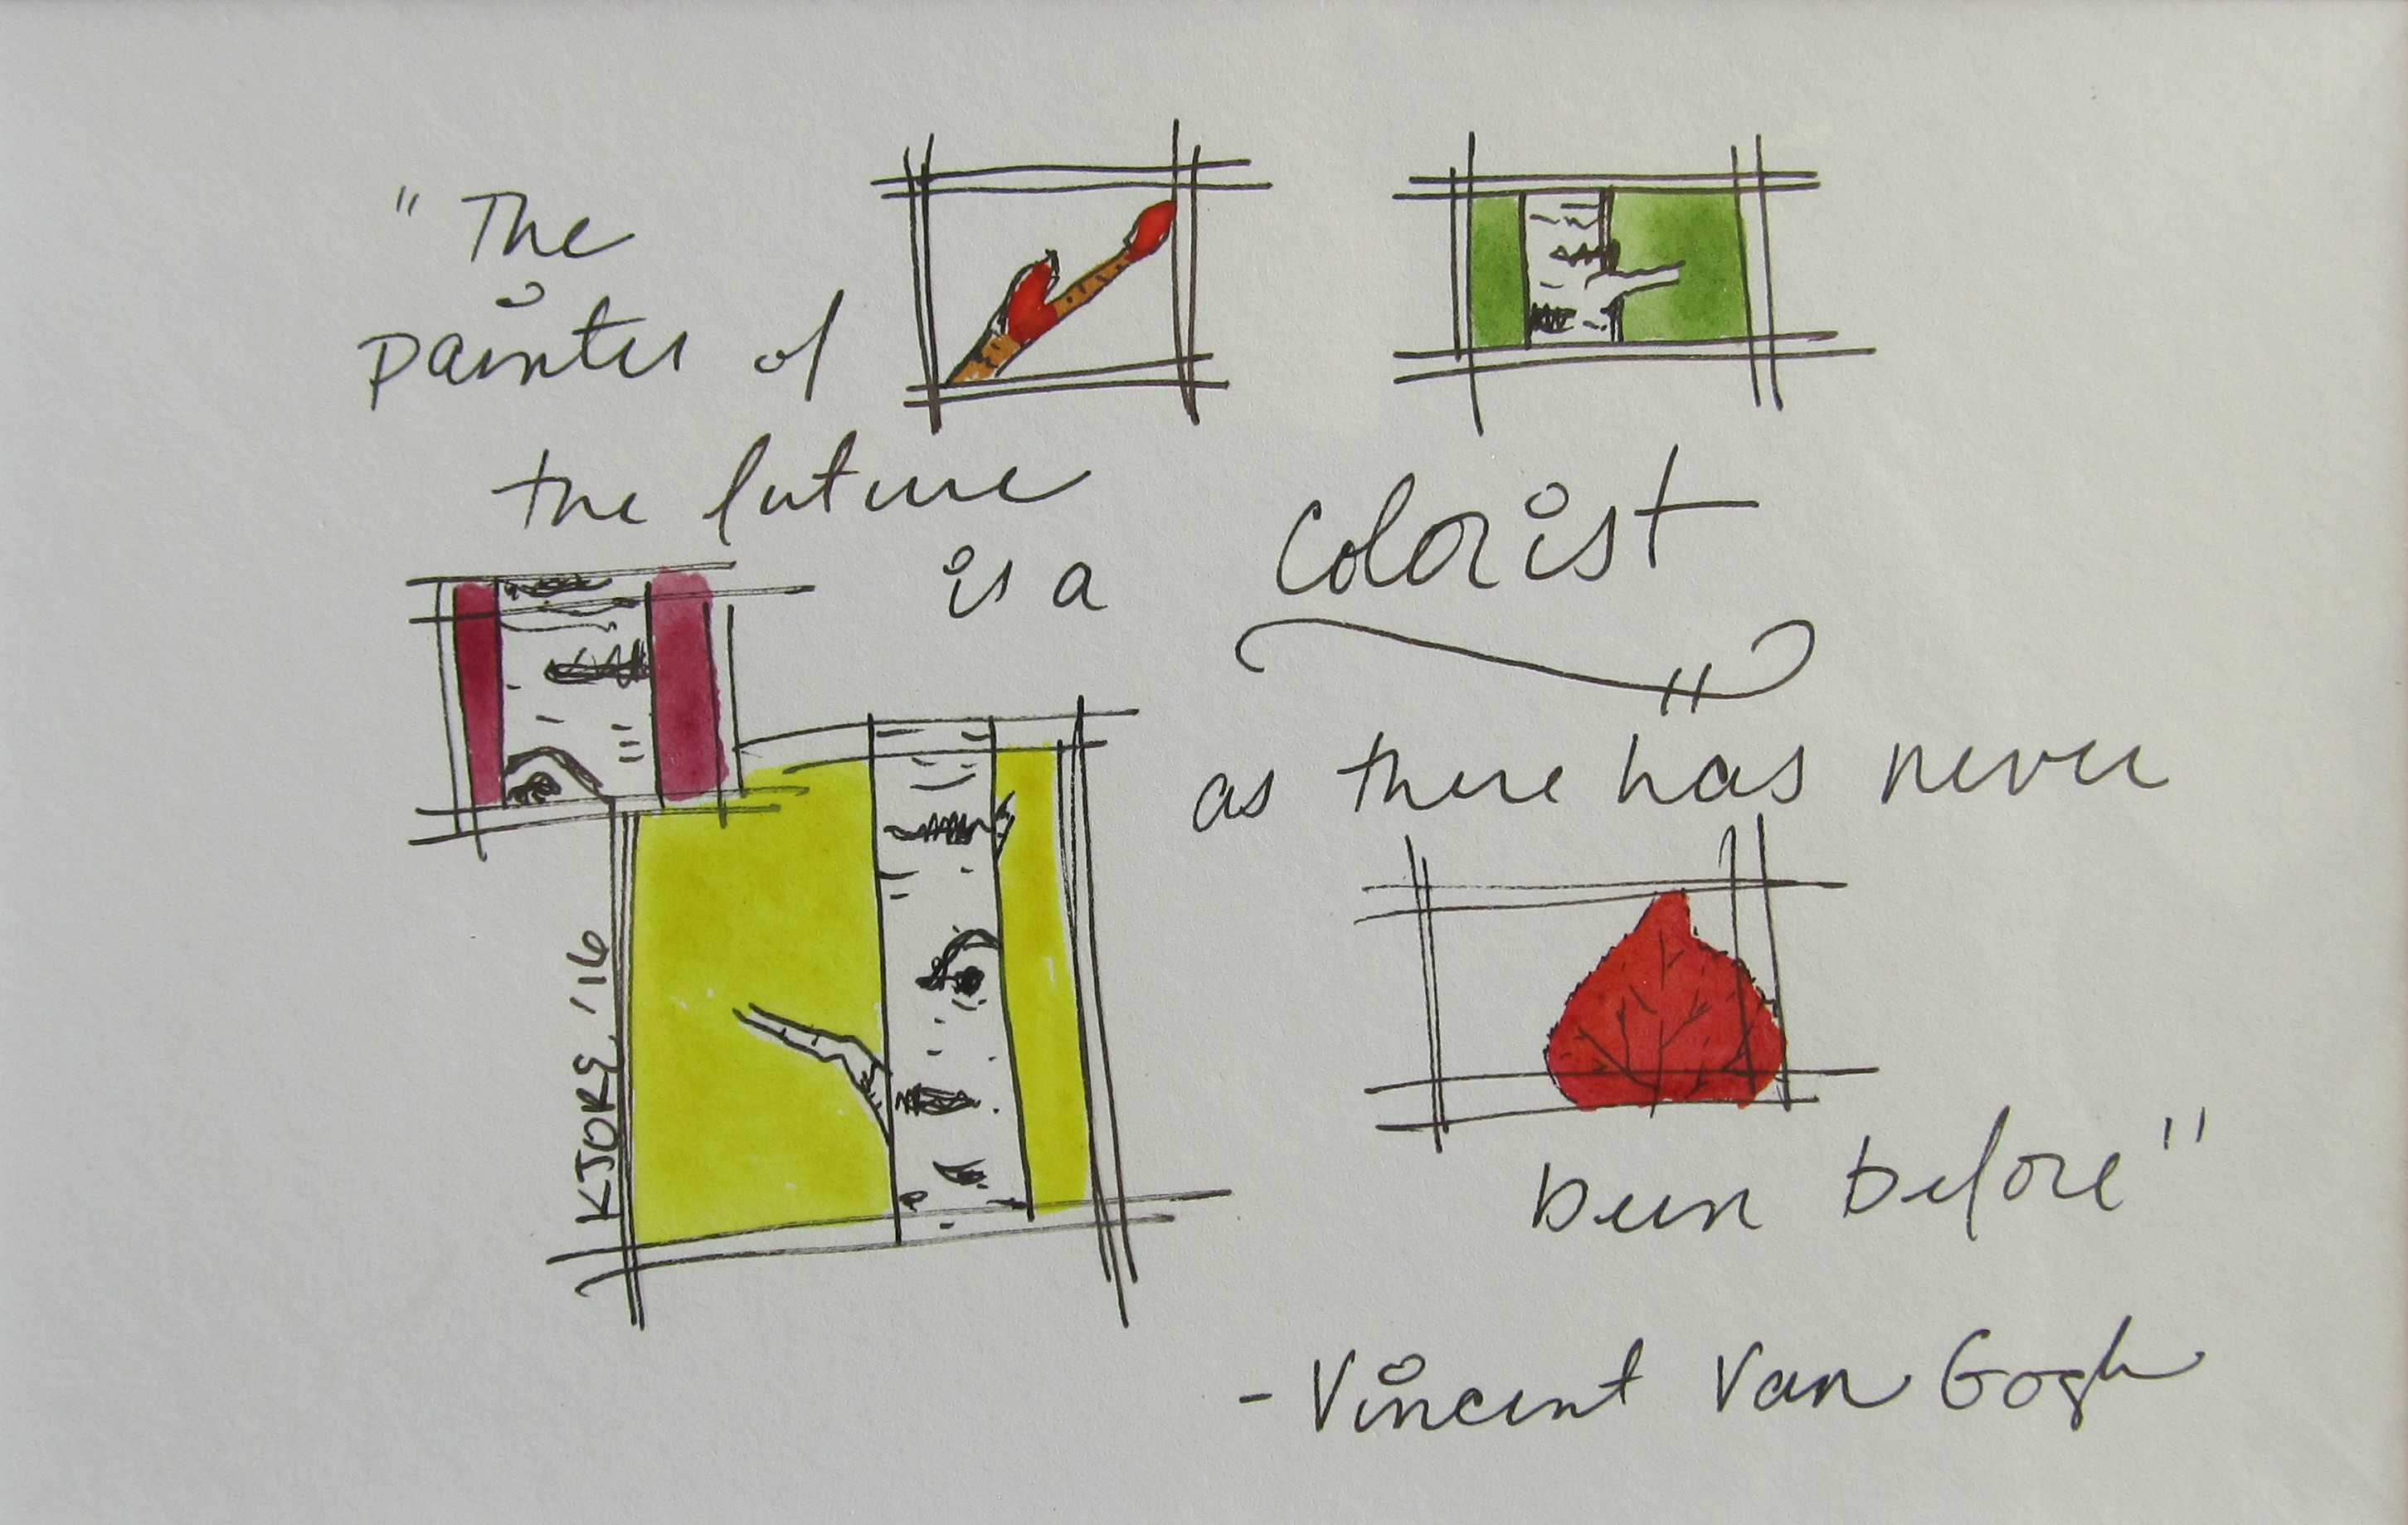 "The
painter of
the future
is a colorist
as there has never
been before"
- Vincent Van Gogh
KJORE '16